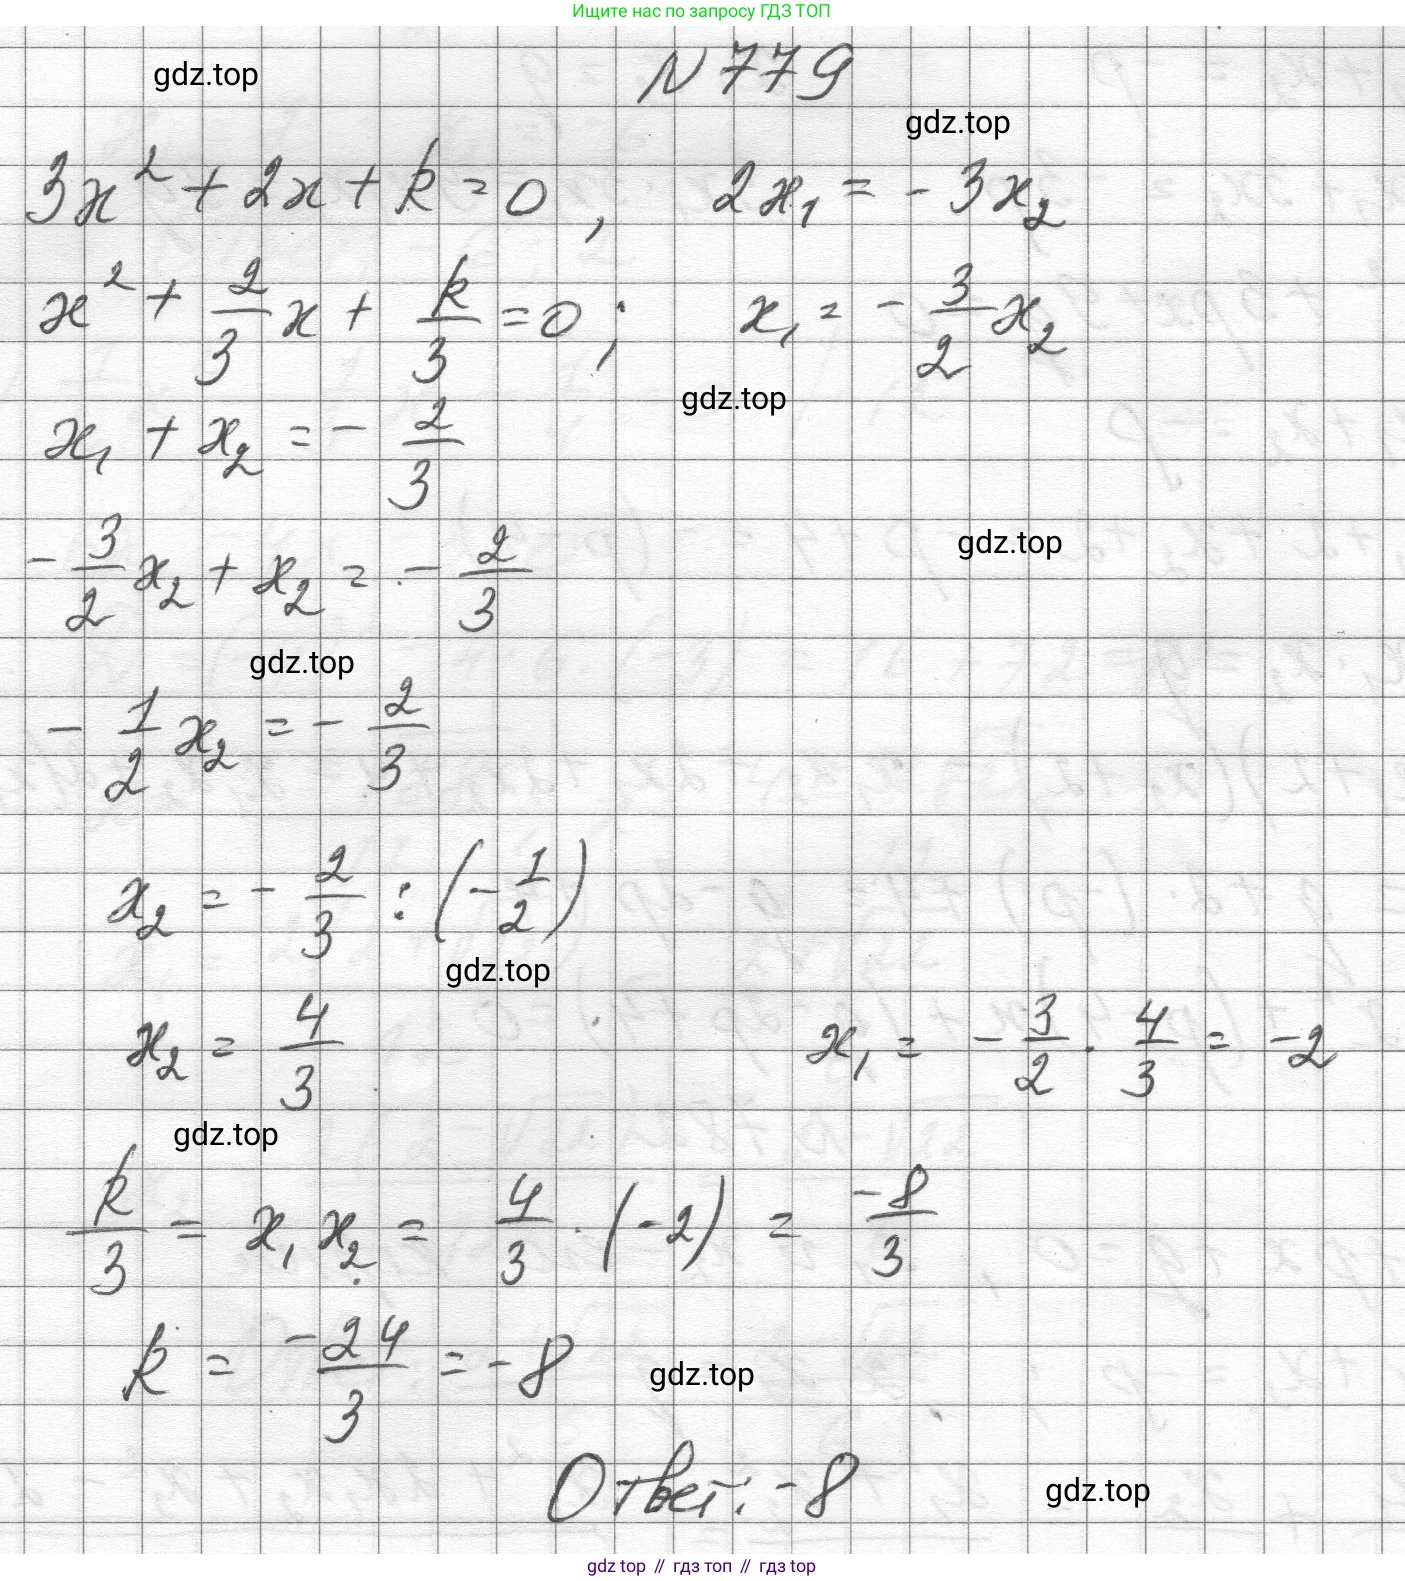 Ищите нас по запросу ГДЗ ТОП
N 779
gdz.top
gdz.top
3x² + 2x + k = 0, 2x₁ = - 3x₂
x² + 2/3 x + k/3 = 0; x₁ = - 3/2 x₂
gdz.top
x₁ + x₂ = - 2/3
- 3/2 x₂ + x₂ = - 2/3
gdz.top
gdz.top
- 1/2 x₂ = - 2/3
x₂ = - 2/3 : (- 1/2)
gdz.top
x₂ = 4/3 x₁ = - 3/2 · 4/3 = -2
gdz.top
k/3 = x₁ x₂ = 4/3 · (-2) = -8/3
k = -24/3 = -8
gdz.top
Ответ: -8
gdz.top
gdz top // гдз топ // гдз top